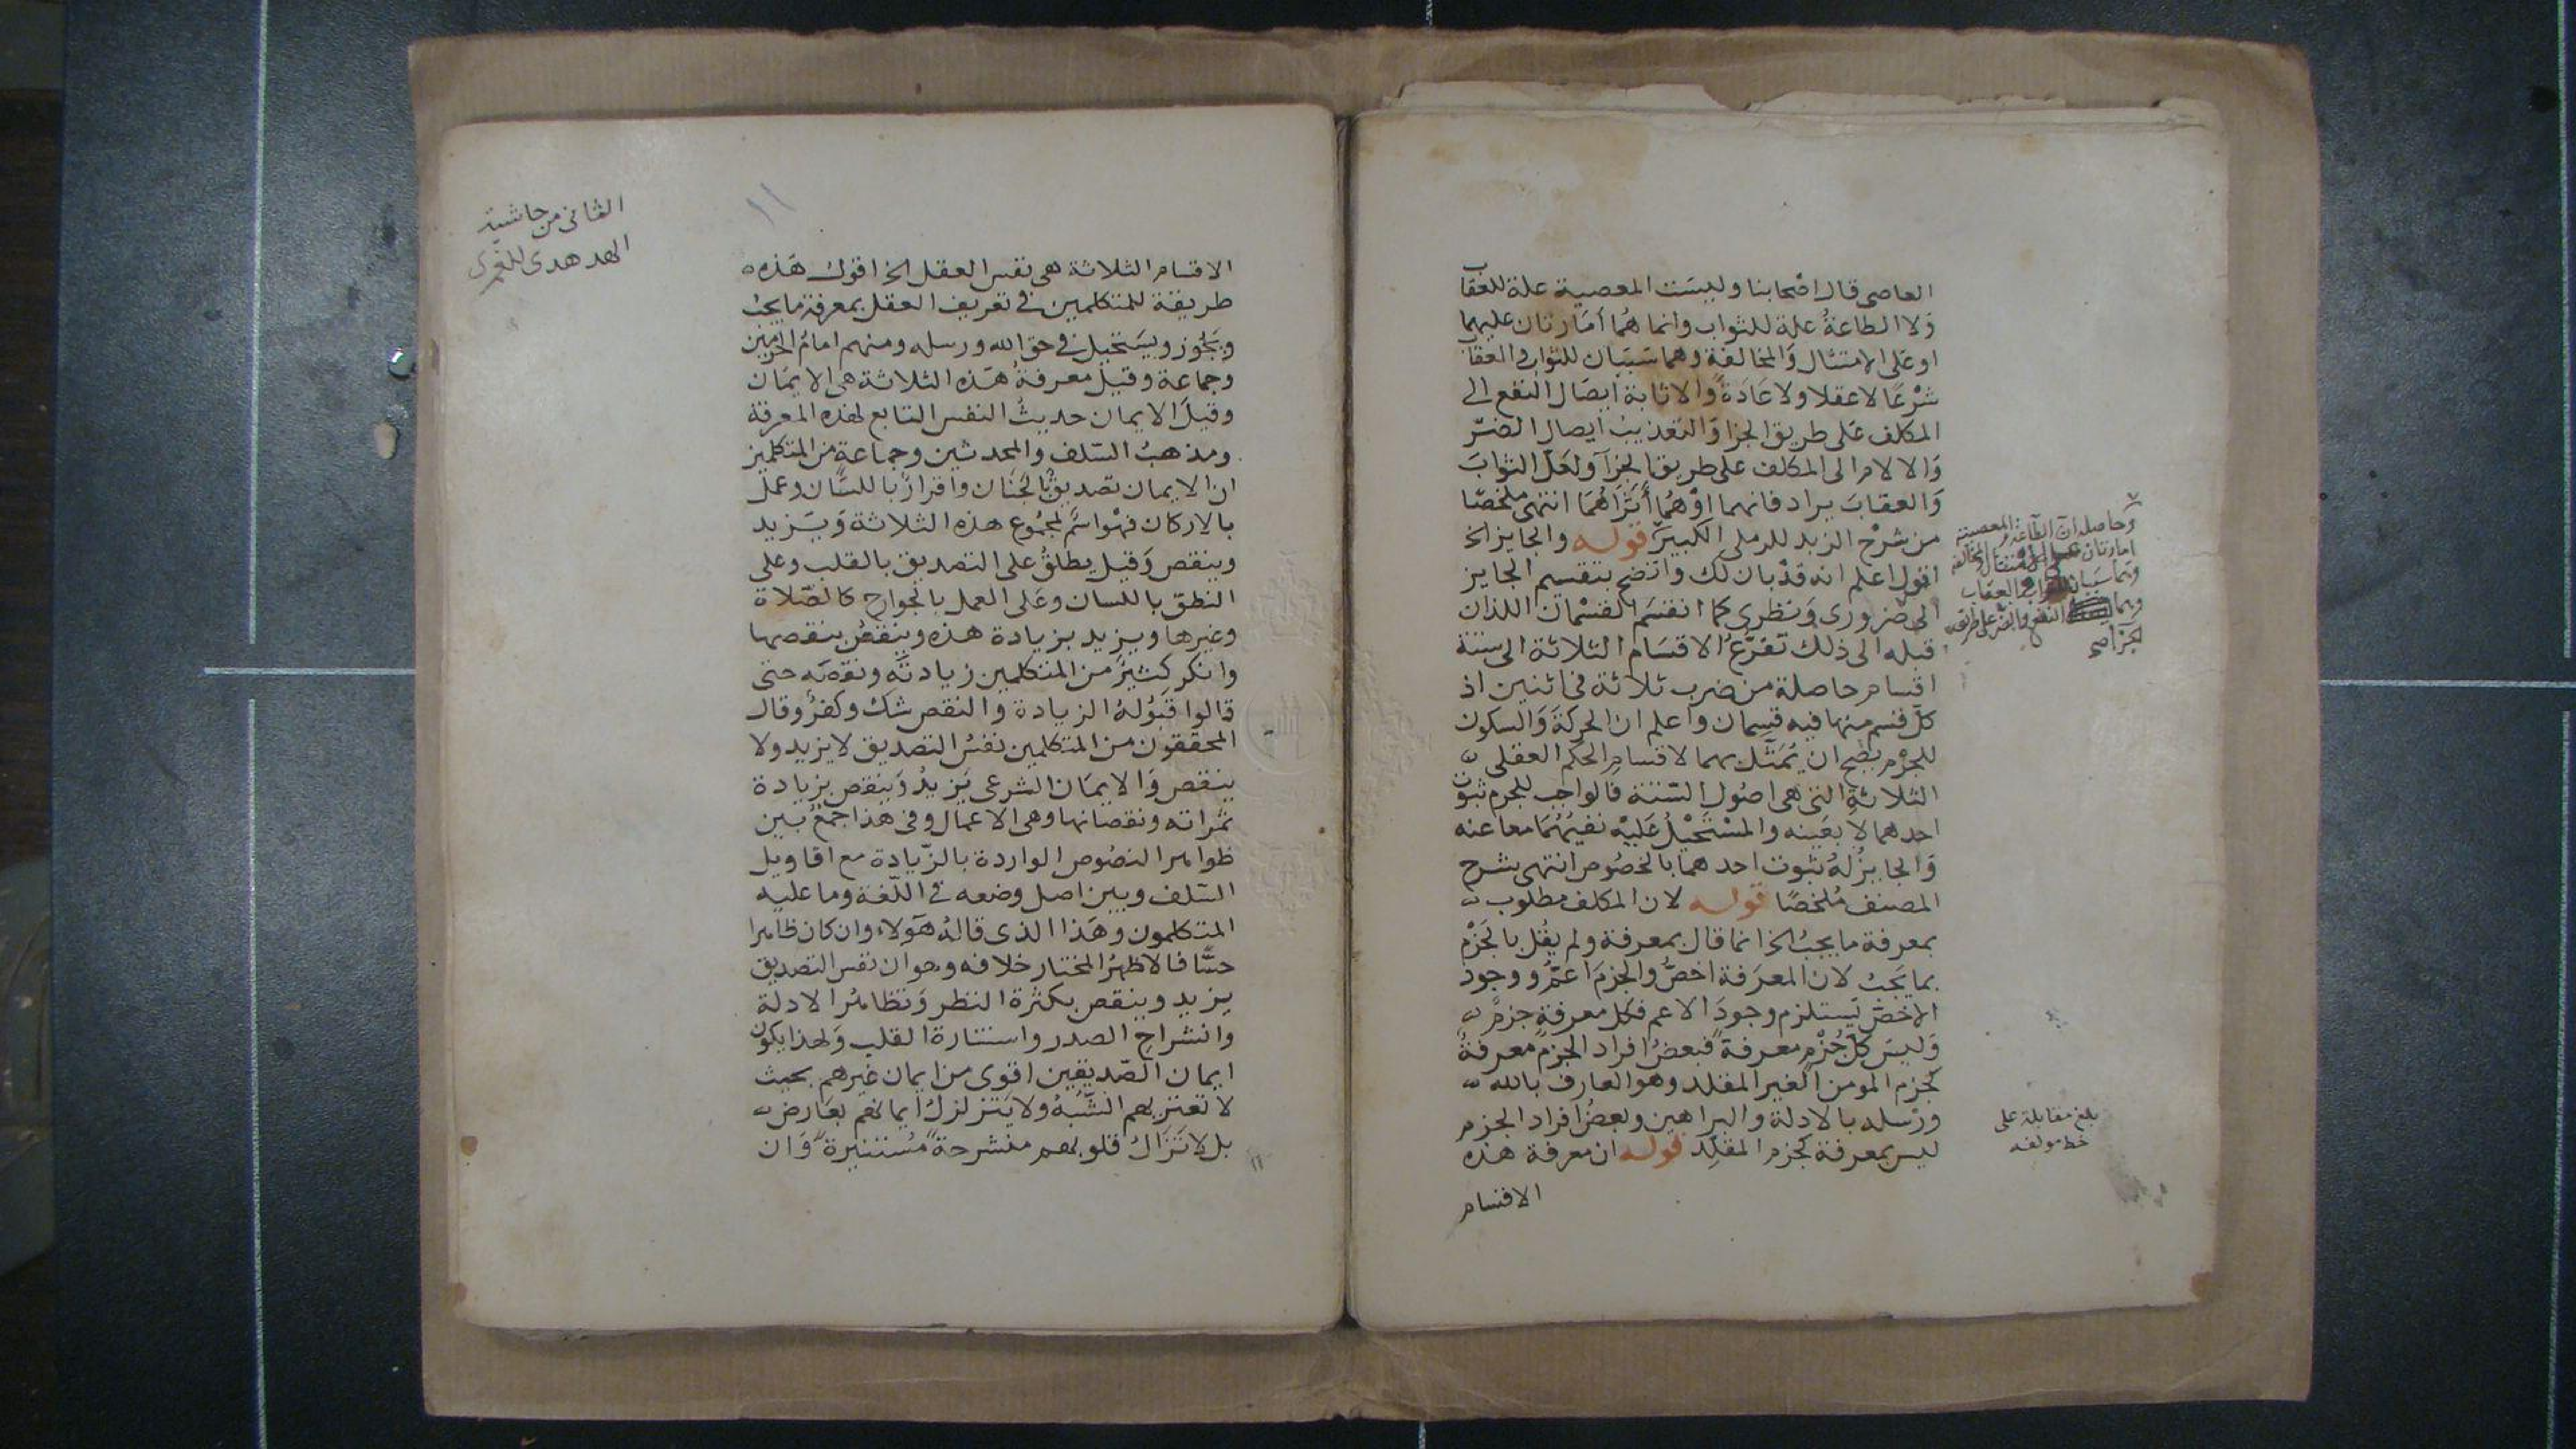 العاصى قال اصحابنا وليست المعصية علة للعقاب
ولا الطاعةُ علة للثواب وانما هُما اَمَارتان عليهما
او على الامتثال وَالمخالفة وهما سَبَبَان للثواب والعقاب
شرْعًا لا عقلا ولا عَادَةً والاثابة ايصَال النفع الى
المكلف عَلى طريق الجزا وَالتعْذيبُ ايصال الضّر
وَالالام الى المكلف على طريق الجزآ ولعَلّ الثوابَ
وَالعقابَ يراد فانهما اوْ هُما أَثَرَاهُمَا انتهى ملخصًا
من شرْح الزبد للرملى الكبير قوله والجايز الخ
اقول اعلم انه قدْ بان لك واتضح بتقسيم الجايز
الى ضرورى وَنظرى كما انقسَم القسْمان اللذان
قبله الى ذلك تفَرّعُ الاقسَام الثلاثة الى ستة
اقسام حاصلة من ضرب ثلاثة فى اثنين اذ
كلّ قسم منها فيه قسِمان وَاعلم ان الحركةَ وَالسكون
للجرْم يصح ان يُمَثّل بهما لاقسامِ الحكم العقلى
الثلاثةِ التى هى اصُول السّتة فالواجب للجرم ثبوت
احدهما لا بعَينه والمسْتَحيْلُ عَليْه نفيُهُمَا معا عنه
وَالجايزُ لهُ ثبوت احدهما بالخصُوص انتهى بشرح
المصنف مُلخصًا قوله لان المكلف مطلوب
بمعرفة ما يجبُ الخ انما قال بمعرفة ولم يقُل بالجَزْم
بما يَجبُ لان المعرَفة اخصُّ والجزمَ اعمُّ ووجود
الاخصّ يَستلزم وجودَ الاعم فكل معرفةٍ جزمٌ
وَليسَ كلّ جُزْمٍ معرفةً فبعضُ افراد الجزم معرفةٌ
كجزم المومن الغير المقلد وهو العارف بالله
ورْسله بالادلة والبراهين وبعضُ افراد الجزم
ليس بمعرفة كجزم المقلّد قوله ان معرفة هذه
الاقسام
وحاصله ان الطاعة والمعصية
امارتان على الامتثال والمخالفة
وهما سببان للثواب والعقاب
النفع والضر على طريق
الجزا صح
بلغ مقابلة على
خط مولفه
الثانى من حاشية
الهدهدى للغمرى
١١
الاقسام الثلاثة هى نفس العقل الخ اقول هَذه
طريقة للمتكلمين فى تعريف العقل بمعرفة ما يجبُ
ويَجُوز ويَستحيل فى حق الله ورسله ومنهم امامُ الحرمين
وجماعة وقيل معرفةُ هَذه الثلاثة هى الايمَان
وقيلَ الايمان حديثُ النفس التابع لهذه المعرفة
ومذهبُ السّلف والمحدثين وجماعةٍ من المتكلمين
ان الايمان تصديقٌ بالجَنَان واقرارٌ باللسَان وعمل
بالاركان فهْو اسمٌ لمجمُوع هذه الثلاثة وَيَزيد
وينقص وَقيل يطلقُ على التصديق بالقلب وعلى
النطق باللسان وعَلى العمل بالجوارح كالصّلاة
وغيرها ويزيد بزيادة هذه وينقصُ بنقصها
وانكر كثيرٌ من المتكلمين زيادتَه ونقصَه حتى
قالوا قبُولهُ الزيادة والنقص شك وكفرٌ وقال
المحققون من المتكلمين نفسُ التصديق لا يزيد ولا
ينقص وَالايمَان الشرعى يَزيدُ وَينقص بزيادة
ثمراته ونقصانها وهى الاعمال وفى هذا جمْعٌ بَين
ظواهر النصُوص الواردة بالزّيادة مع اقاويل
السّلف وبين اصل وضعه فى اللّغة وما عليه
المتكلمون وهَذا الذى قالهُ هَؤلاء وان كان ظاهرا
حسًّا فالاظهرُ المختار خلافه وهو ان نفس التصديق
يزيد وينقص بكثرة النظر وَتظاهُر الادلة
وانشراح الصدر واستنارة القلب وَلهذا يكون
ايمان الصّديقين اقوى من ايمان غيرهم بحيث
لا تعتريهم الشّبَهُ ولا يَتزلزلُ ايمانهم بعَارض
بل لا تَزَالُ قلوبهم منشرحةً مُستنيرةً وَان
١١